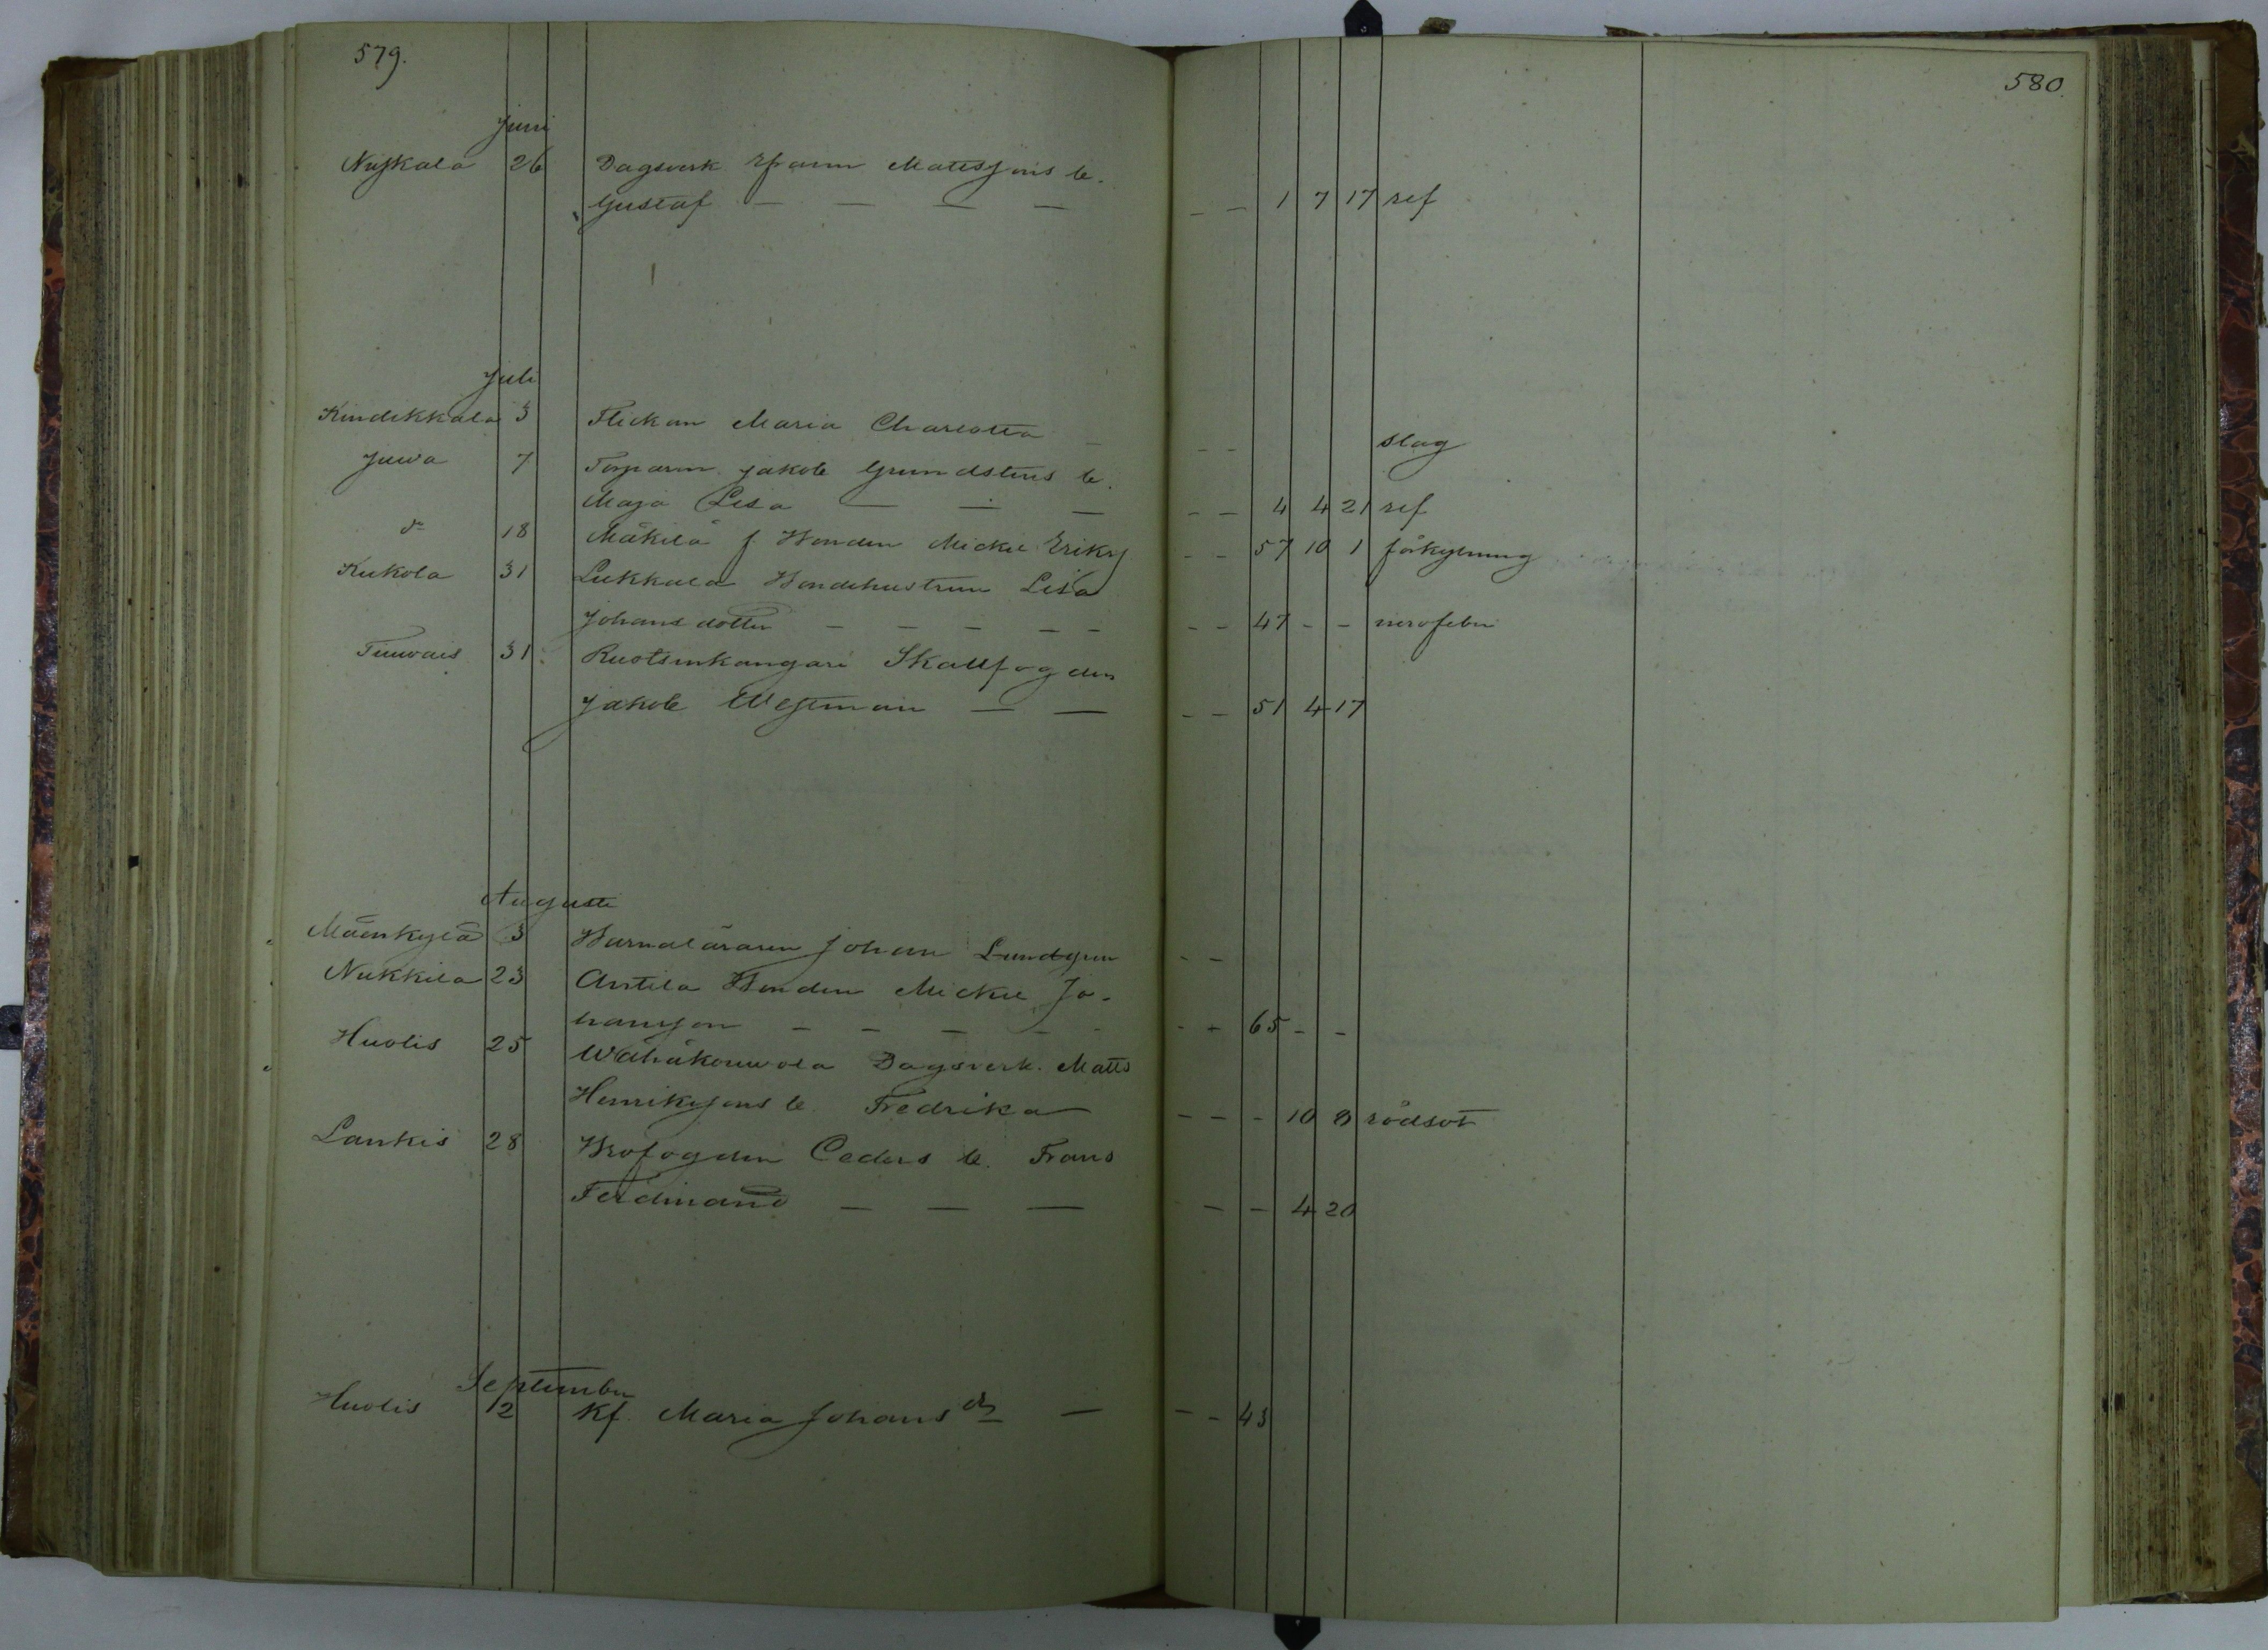 579.
580.
Juni
Nyskala 26 Dagsverk Eframm Matessons b.
Gustaf — — — — - - 1 7 17 ref
Juli
Kindikkala 3 Flickan Maria Charlotta - - - slag
Juwa 7 Torparen Jakob Grundstens b.
Maja Lisa — — — - - 4 4 21 ref
do 18 Mäkilä f Bonden Mickel Eriks - - 57 10 1 förkylning
Kukola 31 Lukkala Bondehustrun Lisa
Johansdotter - - - - - - - 47 - - nervfeber
Tuuvais 31 Ruotsinkangari Skallfogden
Jakob Westman — — - - 51 4 17
Augusti
Mäenkylä 3 Barnaläraren Johan Lundgren - -
Nukkila 23 Antila Bonden Mickel Jo-
hansson - - - - - - - 65 - -
Huolis 25 Wähäkouwola Dagsverk. Matts
Henrikssons b. Fredrika - - - 10 8 rödsot
Lankis 28 Brofogden Ceders b. Frans
Ferdinand — — — - - 4 20
September
Huolis 2 Kf. Maria Johansdr — - - 43